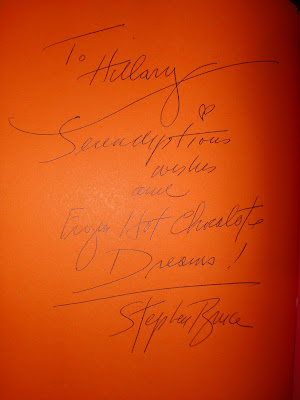 To
Hillary
Serendiptious
wishes
and
Hot Chocolate
Dreams!
Stephen Bruce